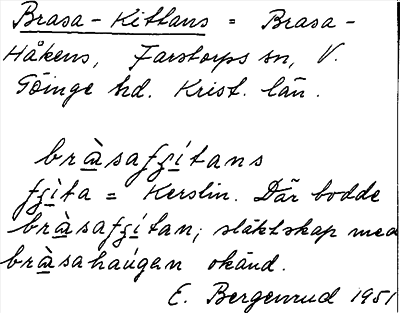 Brasa-Kittans = Brasa-
Håkens, Farstorps sn, V.
Göinge hd. Krist. län.
bràsafgítans
fgíta = Kerstin. Där bodde
bràsafgítan; släktskap med
bràsahaúgen okänd.
E. Bergenrud 1951